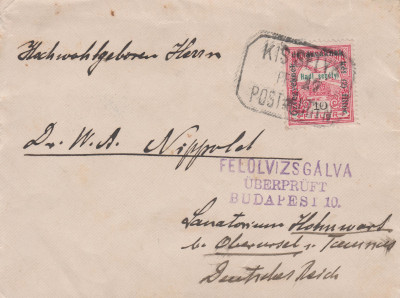 Hochwohlgeboren Herrn
KIS
POST
Hadi segély
10
Dr. W. A. Nippold
FELÜLVIZSGÁLVA
ÜBERPRÜFT
BUDAPEST 10.
Sanatorium Hohenwart
b. Oberursel i. Taunus
Deutsches Reich